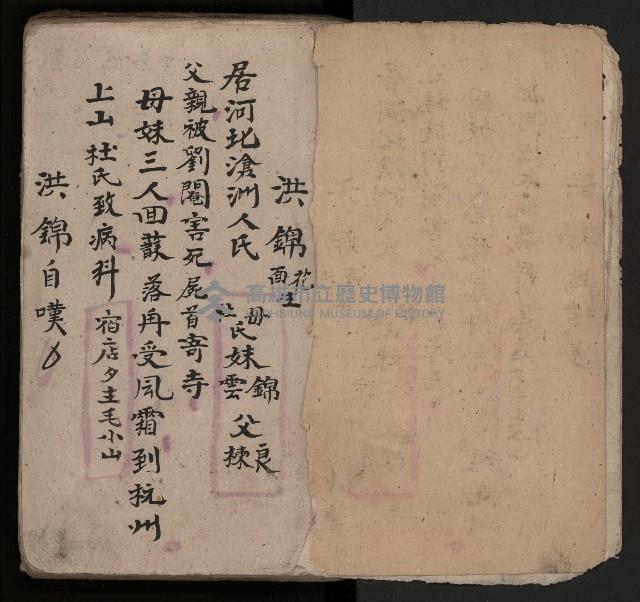 洪錦 花面生
居河北滄洲人民 母杜氏妹錦雲 父良棟
父親被劉閹害死屍首寄寺
母妹三人回蘇落舟受風霜到杭州
上山杜氏致病科 宿店夕主毛小山
洪錦自嘆
高雄市立歷史博物館
KAOHSIUNG MUSEUM OF HISTORY